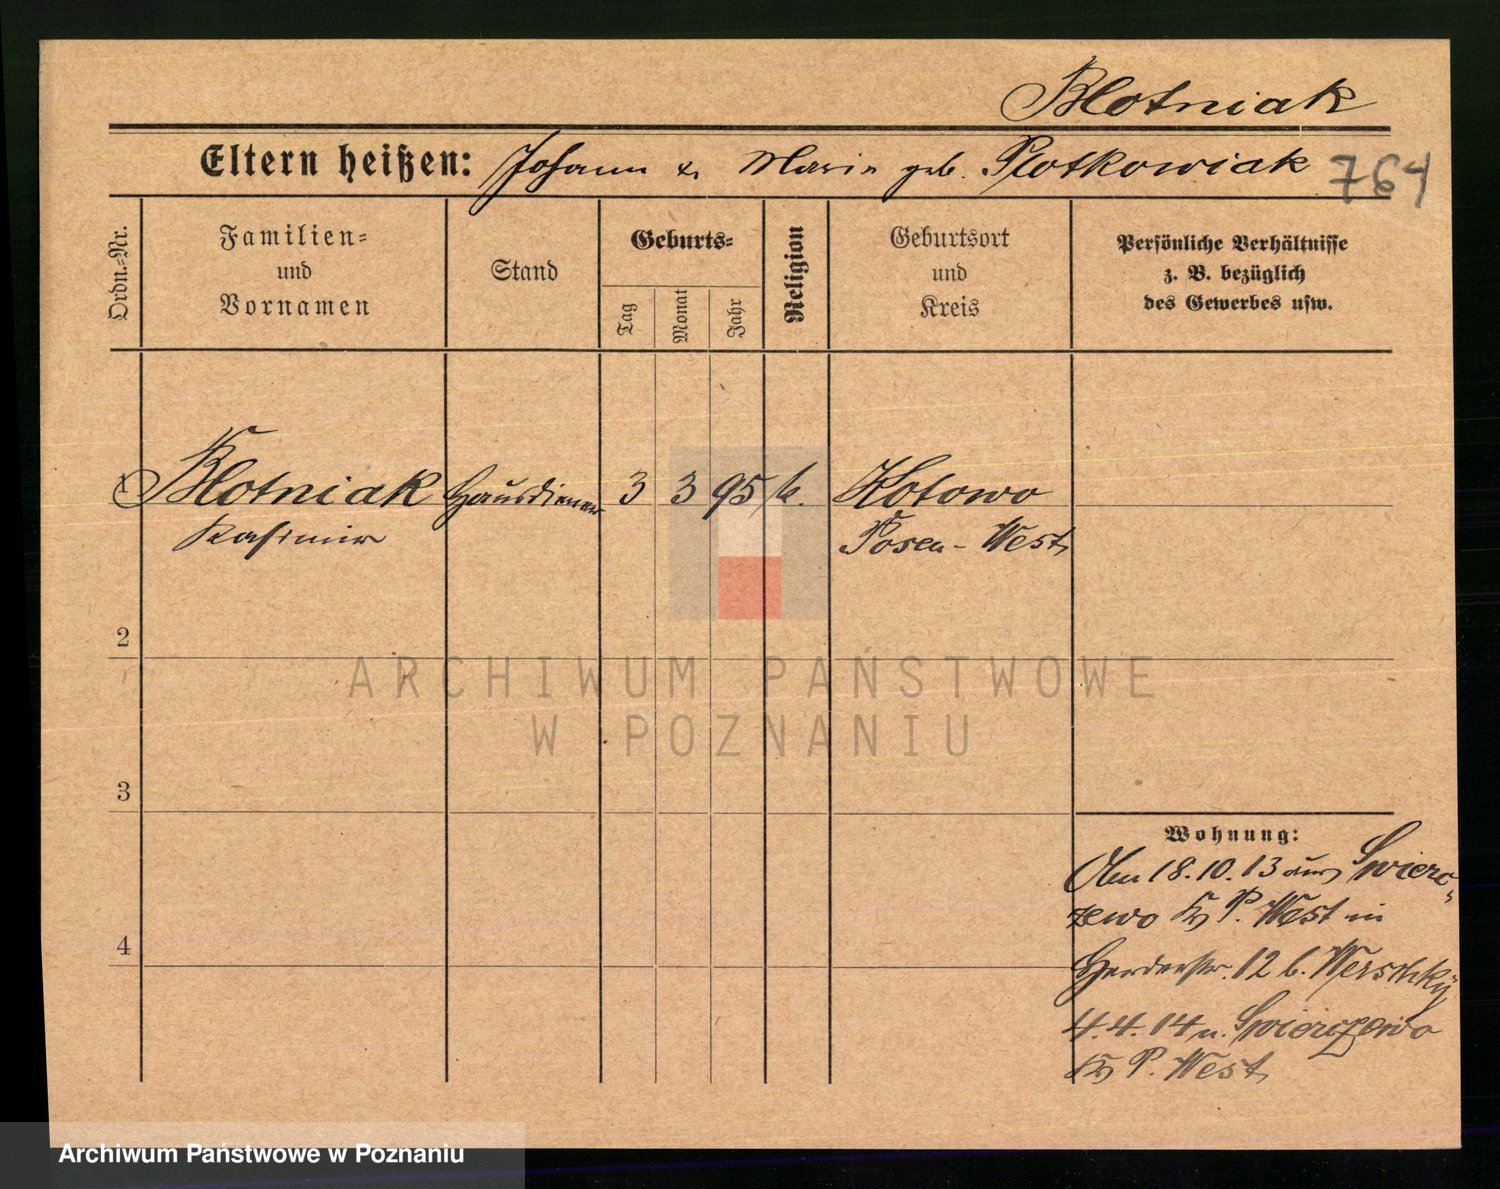 Blotniak
Eltern heißen: Johann & Marie geb. Plotkowiak 764
Ordn.=Nr.
Familien=
und
Vornamen
Stand
Geburts=
Tag
Monat
Jahr
Religion
Geburtsort
und
Kreis
Persönliche Verhältnisse
z. B. bezüglich
des Gewerbes usw.
1 Blotniak Hausdiener 3 3 95 k. Kotowo
Kasimir Posen-West
2
3
4
Wohnung:
18.10.13 aus Swierc-
zewo Kr P. West in
Herderstr. 12 b. Werschky
4.4.14 n. Swierczewo
Kr P. West
ARCHIWUM PAŃSTWOWE
W POZNANIU
Archiwum Państwowe w Poznaniu